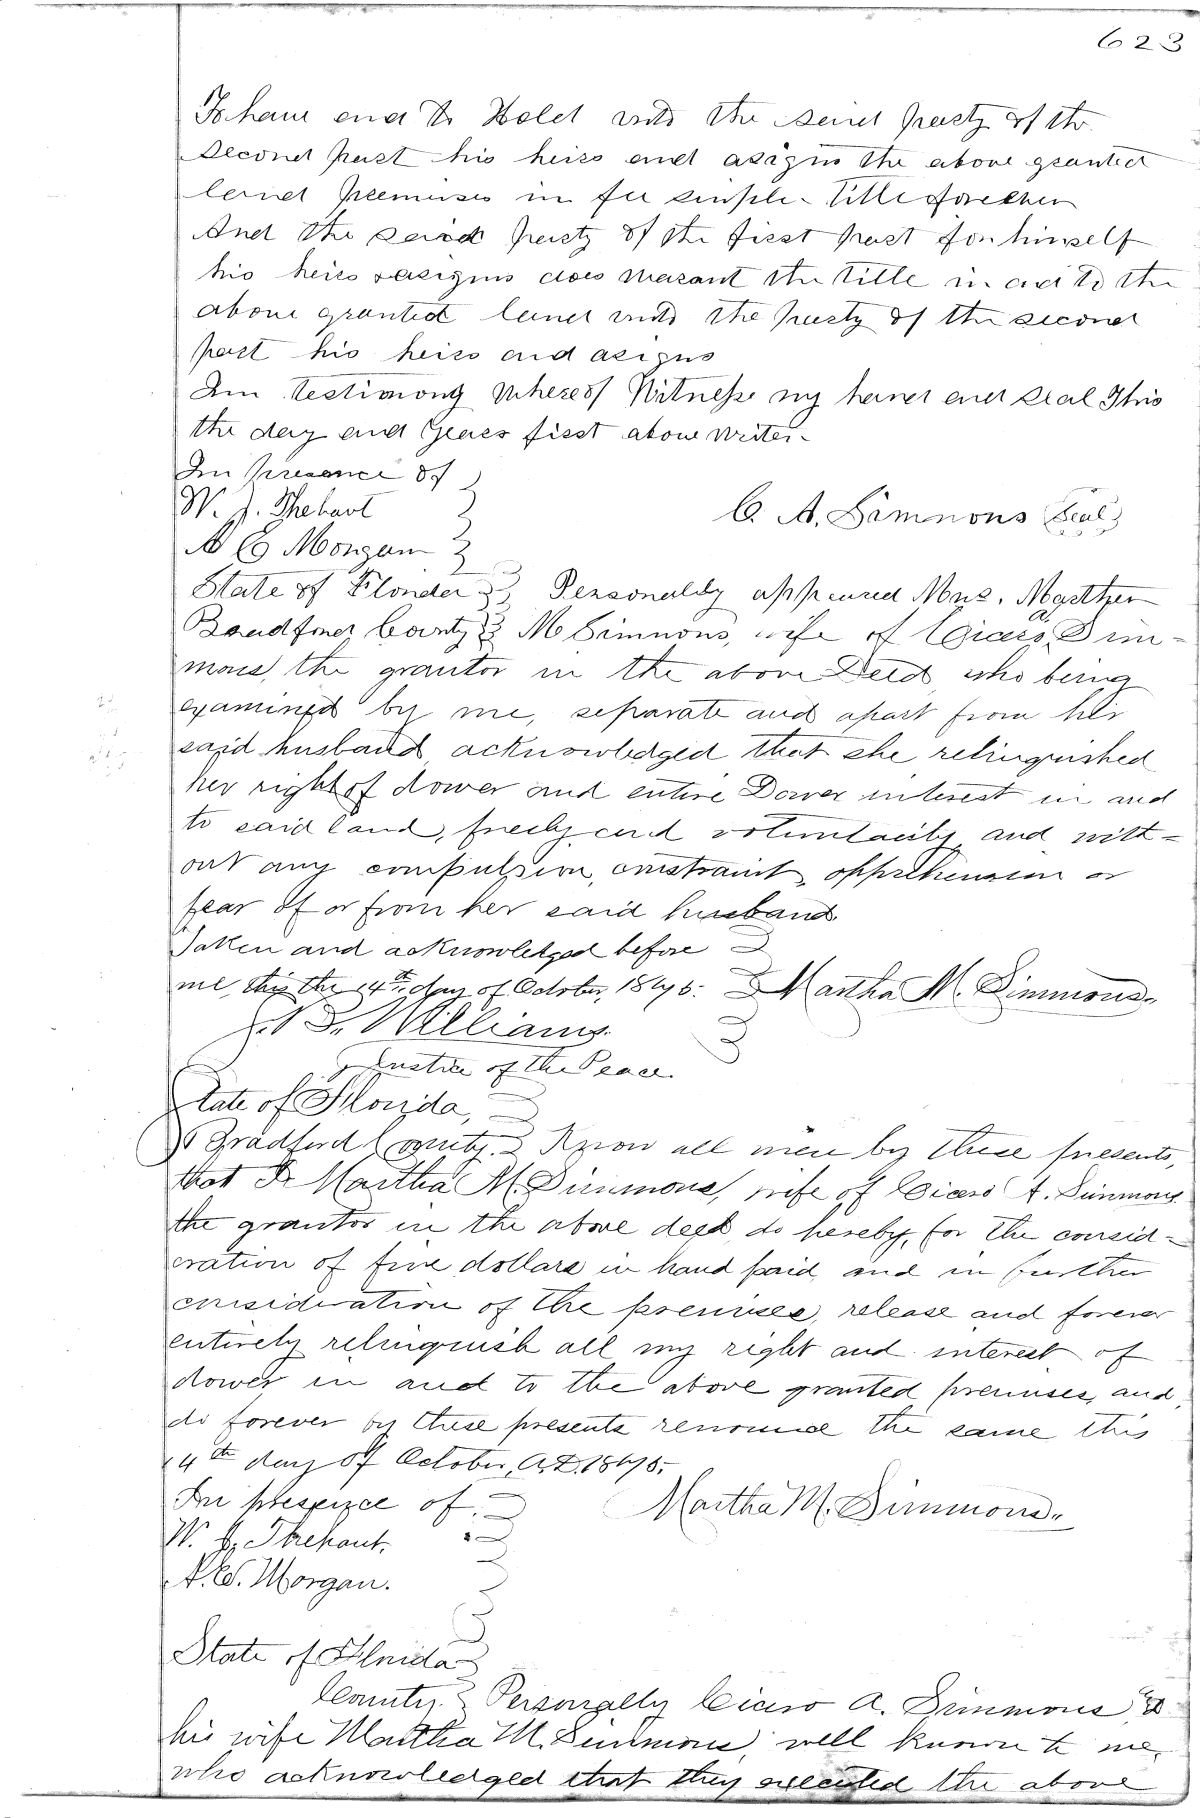 623
To have and to Hold unto the said party of the
second part his heirs and asigns the above granted
land premises in fee simple title forever
And the said party of the first part for himself
his heirs & asigns does warant the title in and to the
above granted land unto the party of the second
part his heirs and asigns
In testimony whereof Witness my hand and seal This
the day and years first above writen
In presence of
W. J. Thebaut
C. A. Simmons (Seal)
A E Morgan
State of Florida } Personally appeared Mrs. Marther
Bradford County } M Simmons, wife of Cicero A. Sim-
mons, the grantor in the above Deed who being
examined by me, separate and apart from her
said husband acknowledged that she relinquished
her right of dower and entire Dower interest in and
to said land, freely and voluntarily and with-
out any compulsion, constraint, apprehension or
fear of or from her said husband.
Taken and acknowledged before
me, this the 14th day of October, 1875. Martha M. Simmons
Williams.
Justice of the Peace.
State of Florida,
Bradford County. } Know all men by these presents,
that I, Martha M. Simmons, wife of Cicero A. Simmons
the grantor in the above deed do hereby, for the consid-
eration of five dollars in hand paid, and in further
consideration of the premises, release and forever
entirely relinquish all my right and interest of
dower in and to the above granted premises, and
do forever by these presents renounce the same this
14th day of October, A.D. 1875.
In presence of.
Martha M. Simmons
W. J. Thebaut.
A. E. Morgan.
State of Florida
County. } Personally Cicero A. Simmons, &
his wife Martha M. Simmons, well known to me,
who acknowledged that they executed the above